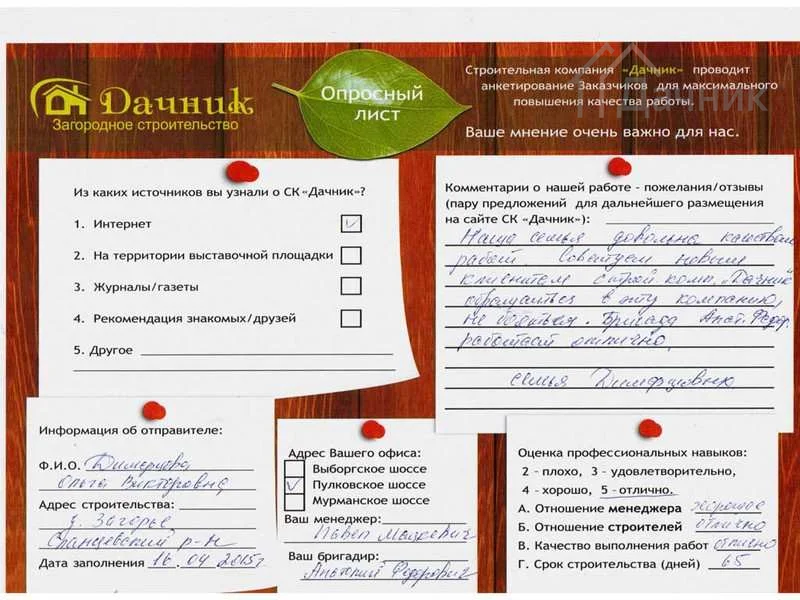 Дачник
Загородное строительство
Опросный
лист
Строительная компания «Дачник» проводит
анкетирование Заказчиков для максимального
повышения качества работы.
Ваше мнение очень важно для нас.
Дачник
Из каких источников вы узнали о СК «Дачник»?
1. Интернет
2. На территории выставочной площадки
3. Журналы/газеты
4. Рекомендация знакомых/друзей
5. Другое
Комментарии о нашей работе - пожелания/отзывы
(пару предложений для дальнейшего размещения
на сайте СК «Дачник»):
Наша семья довольна качеством
работ. Советуем новым
клиентам строй комп. "Дачник"
обращаться в эту компанию,
не бояться. Бригада Анат. Федор.
работает отлично.
семья
Информация об отправителе:
Ф.И.О.
Ольга Викторовна
Адрес строительства:
д. Загорье
Сланцевский р-н
Дата заполнения 16 04 2015г
Адрес Вашего офиса:
Выборгское шоссе
Пулковское шоссе
Мурманское шоссе
Ваш менеджер:
Павел
Ваш бригадир:
Анатолий Федорович
Оценка профессиональных навыков:
2 - плохо, 3 - удовлетворительно,
4 - хорошо, 5 - отлично.
А. Отношение менеджера хорошее
Б. Отношение строителей отлично
В. Качество выполнения работ отлично
Г. Срок строительства (дней) 65